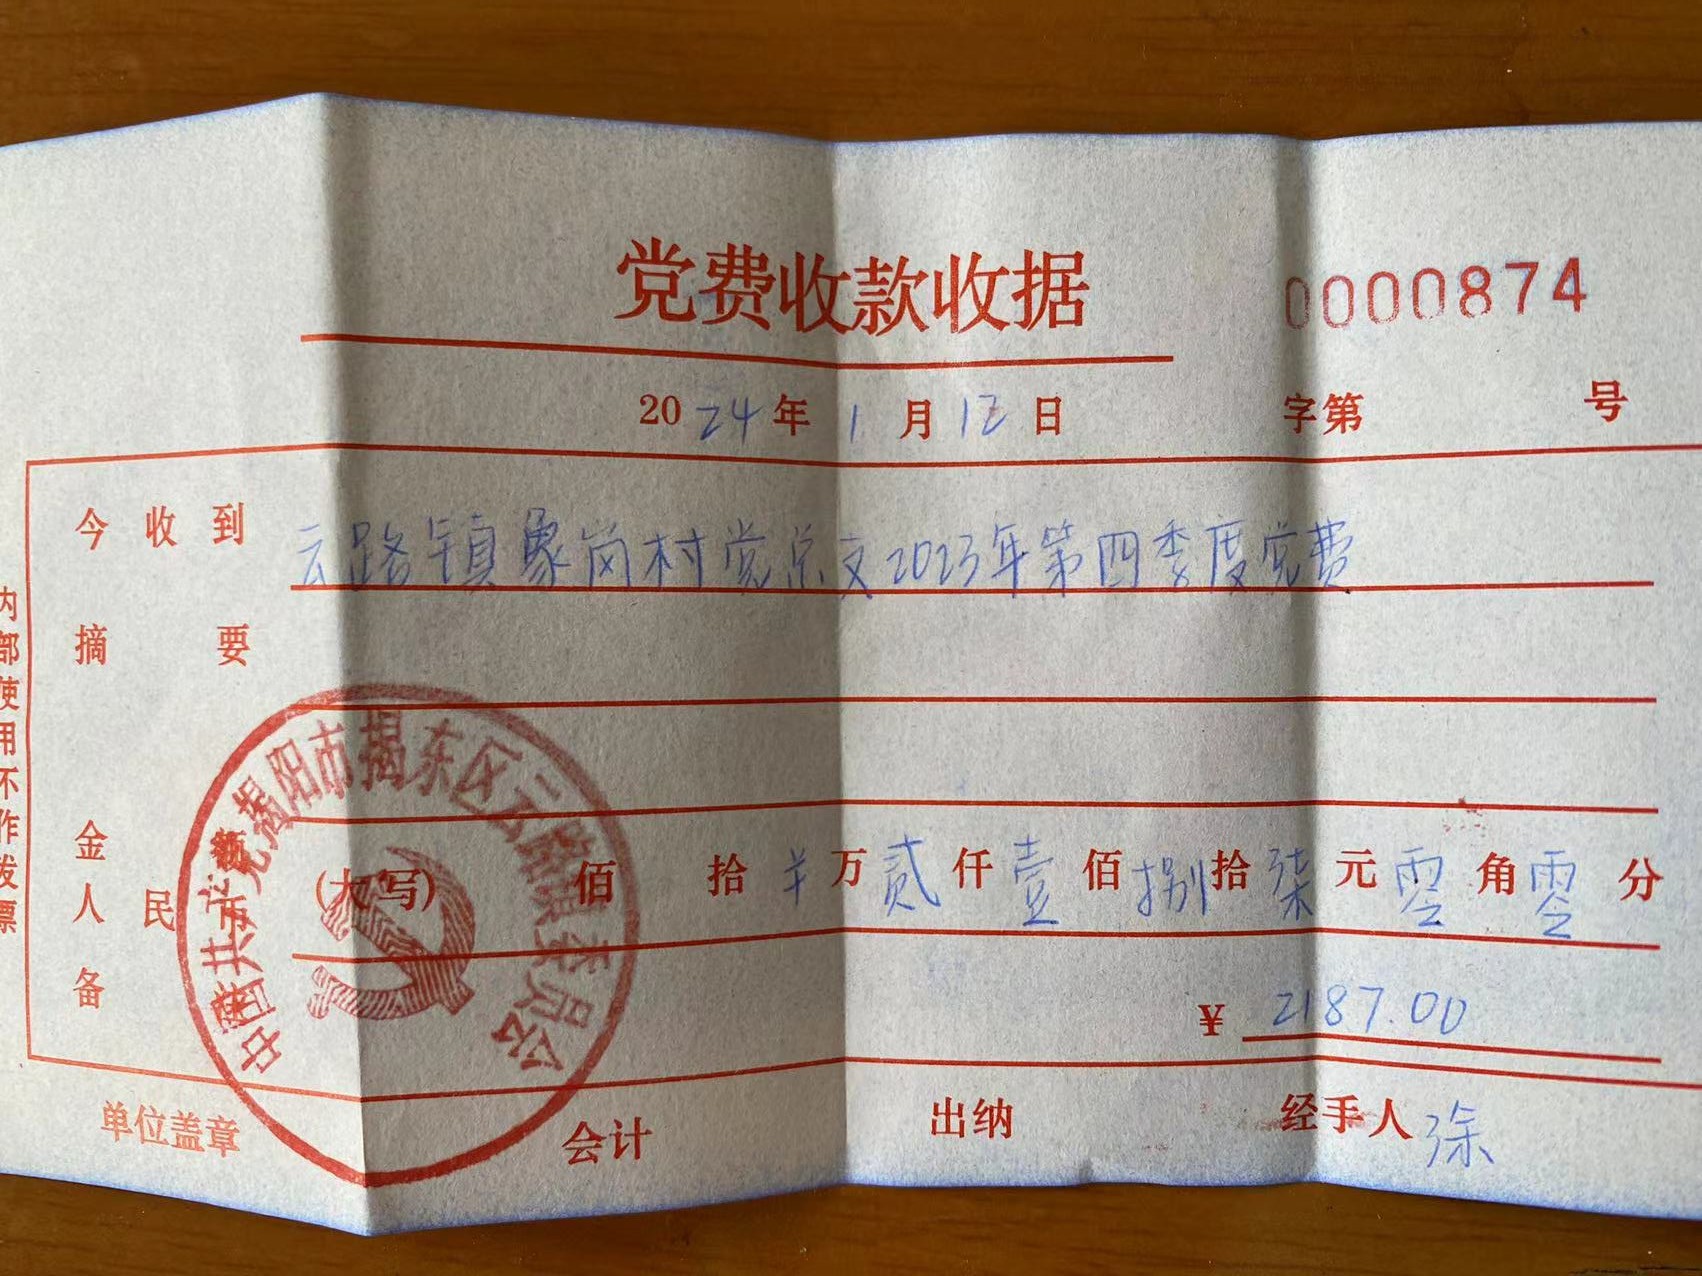 党费收款收据
0000874
2024年1月12日
字第 号
今收到 云路镇象岗村党总支2023年第四季度党费
摘要
金额
人民币(大写) 佰 拾 羊 万 贰 仟 壹 佰 捌 拾 柒 元 零 角 零 分
备注
¥ 2187.00
单位盖章 会计 出纳 经手人 涂
内部使用不作发票
中国共产党揭阳市揭东区云路镇委员会